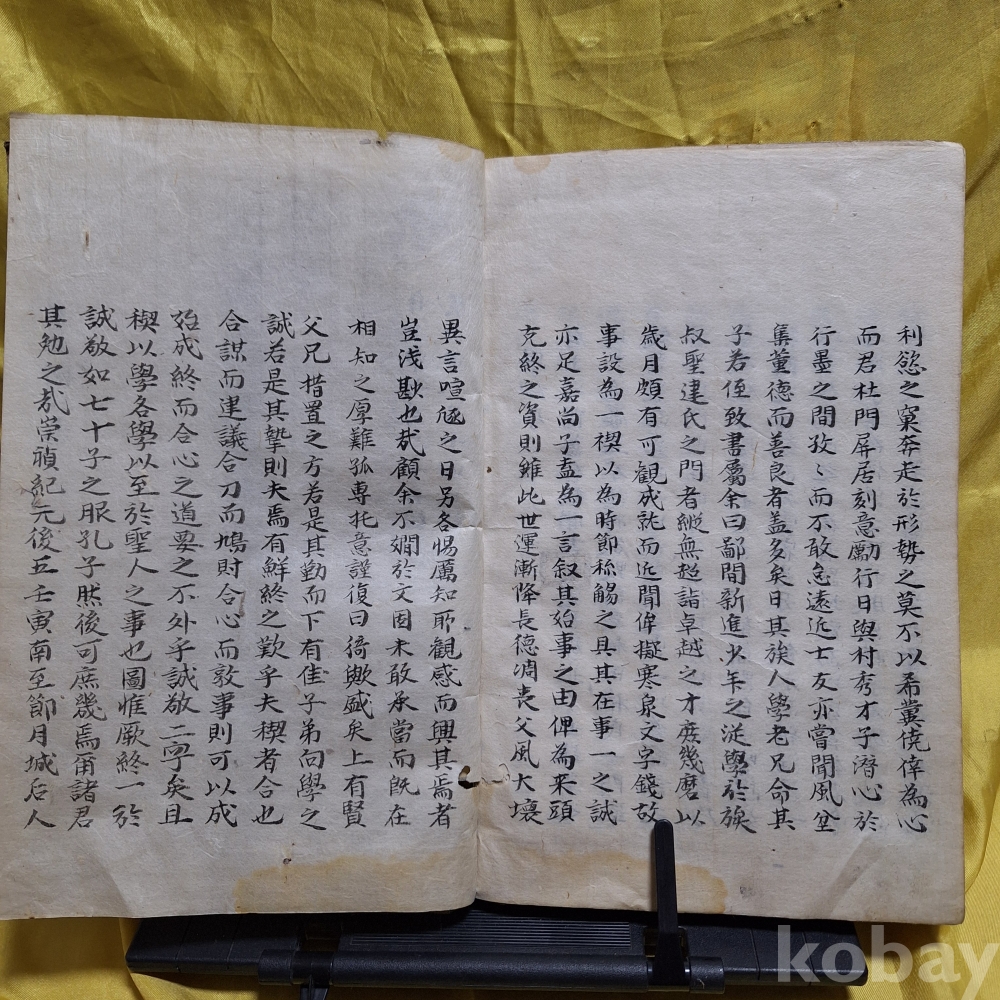 利慾之窠奔走於形勢之莫不以希冀僥倖為心
而君杜門屏居刻意勵行日與村秀才子潛心於
行墨之間孜〻而不敢怠遠近士友亦嘗聞風坌
集薰德而善良者盖多矣日其族人學老兄命其
子若侄致書屬余曰鄙間新進少年之從學於族
叔聖建氏之門者縱無超詣卓越之才庶幾磨以
歲月頗有可觀成就而近聞俾擬寒泉文字錢故
事設為一稧以為時節稱觴之具其在事一之誠
亦足嘉尚子盍為一言叙其始事之由俾為来頭
克終之資則雖此世運漸降長德凋喪父風大壞
異言喧豗之日另各惕厲知所觀感而興其焉者
豈淺尠也哉顧余不嫺於文固未敢承當而旣在
相知之厚難孤專托意謹復曰猗歟盛矣上有賢
父兄措置之方若是其勤而下有佳子弟向學之
誠若是其摯則夫焉有鮮終之歎乎夫稧者合也
合謀而建議合刀而鳩財合心而敦事則可以成
始成終而合心之道要之不外乎誠敬二字矣且
稧以學各學以至於聖人之事也圖惟厥終一於
誠敬如七十子之服孔子然後可庶幾焉甫諸君
其勉之哉崇禎紀元後五壬寅南至節月城后人
kobay